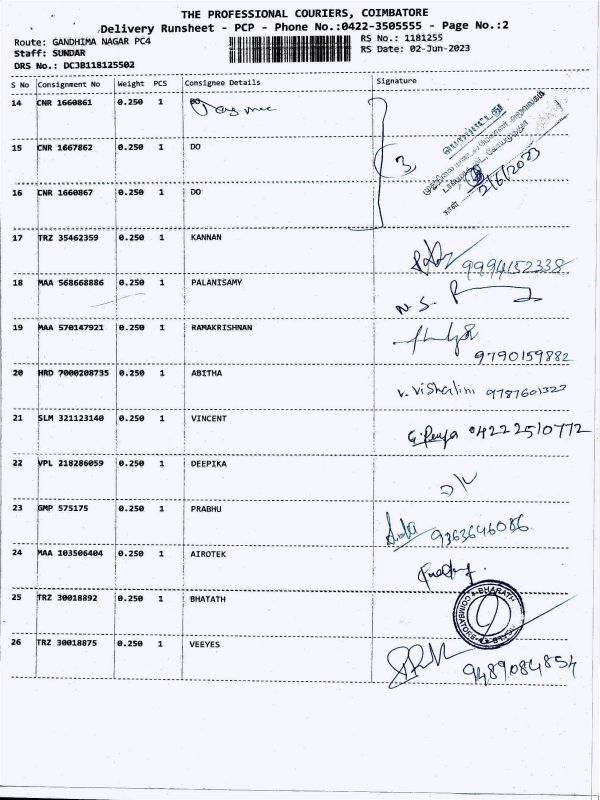 THE PROFESSIONAL COURIERS, COIMBATORE
Delivery Runsheet - PCP - Phone No.:0422-3505555 - Page No.:2
Route: GANDHIMA NAGAR PC4
RS No.: 1181255
Staff: SUNDAR
RS Date: 02-Jun-2023
DRS No.: DCJB118125502
S No Consignment No Weight PCS Consignee Details Signature
14 CNR 1660861 0.250 1 DO
15 CNR 1667862 0.250 1 DO
3
2/6/2023
16 CNR 1660867 0.250 1 DO
17 TRZ 35462359 0.250 1 KANNAN
9994152338
18 MAA 568668886 0.250 1 PALANISAMY
N. S.
19 MAA 570147921 0.250 1 RAMAKRISHNAN
9790159882
20 HRD 7000208735 0.250 1 ABITHA
V. Vishalini 9787601322
21 SLM 321123140 0.250 1 VINCENT
04222510772
22 VPL 218286059 0.250 1 DEEPIKA
23 GMP 575175 0.250 1 PRABHU
9363646086
24 MAA 103506404 0.250 1 AIROTEK
25 TRZ 30018892 0.250 1 BHATATH
BHARATH
26 TRZ 30018875 0.250 1 VEEYES
9489084854